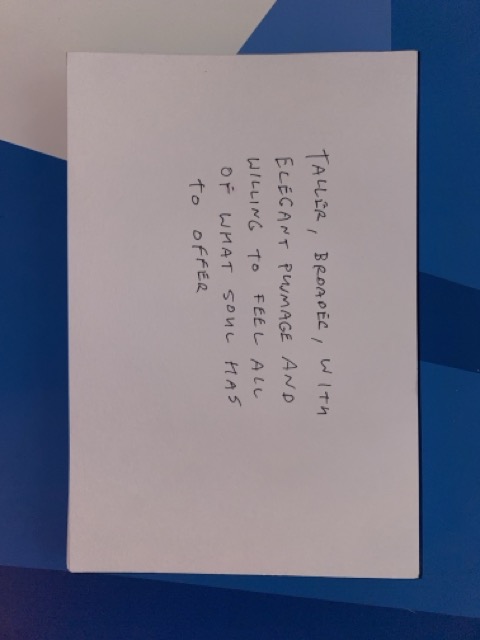 TALLER, BROADER, WITH
ELEGANT PLUMAGE AND
WILLING TO FEEL ALL
OF WHAT SOUL HAS
TO OFFER